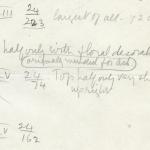 III 24/223 largest of all - 72
half only with floral decorat
originals mended for Ash
V 24/74 Top half only very sl
upright
V 24/162